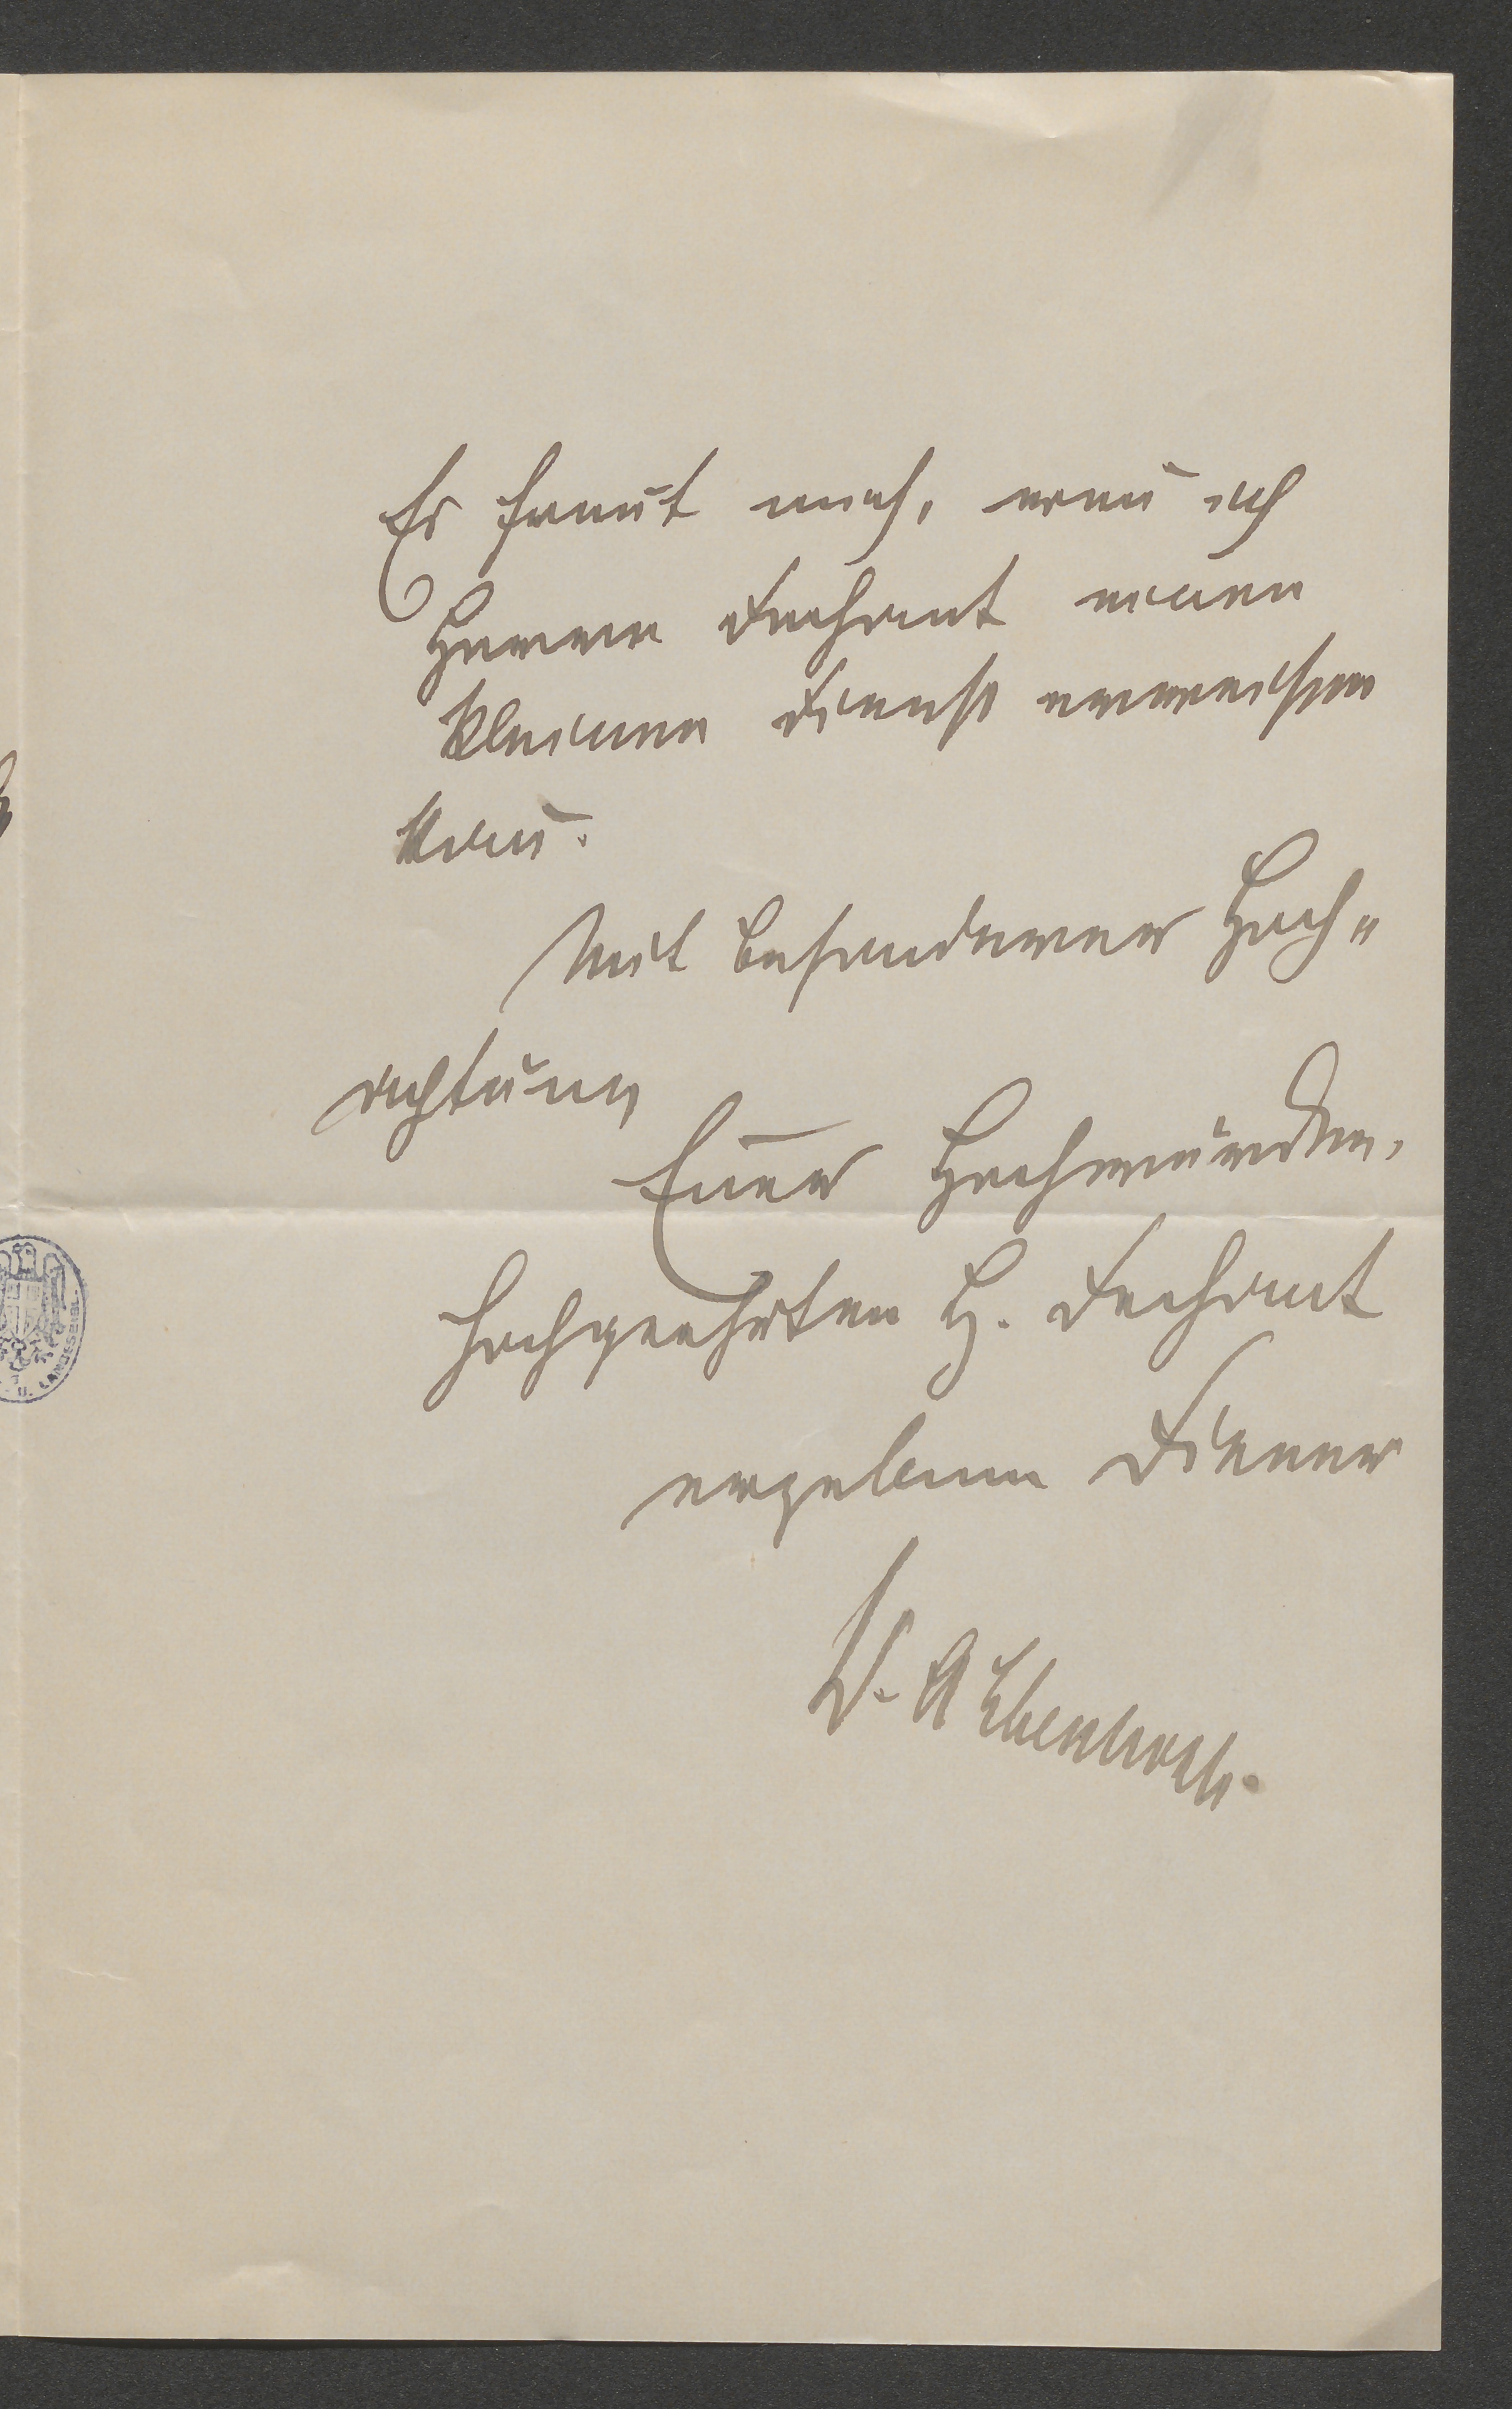 Es freut mich, wenn ich
Herrn Dechant einen
kleinen Dienst erweisen
kann.
Mit besonderer Hoch-
achtung
Euer Hochwürden,
hochgeehrten H. Dechant
ergebener Diener
Dr. A Ebenhoch.